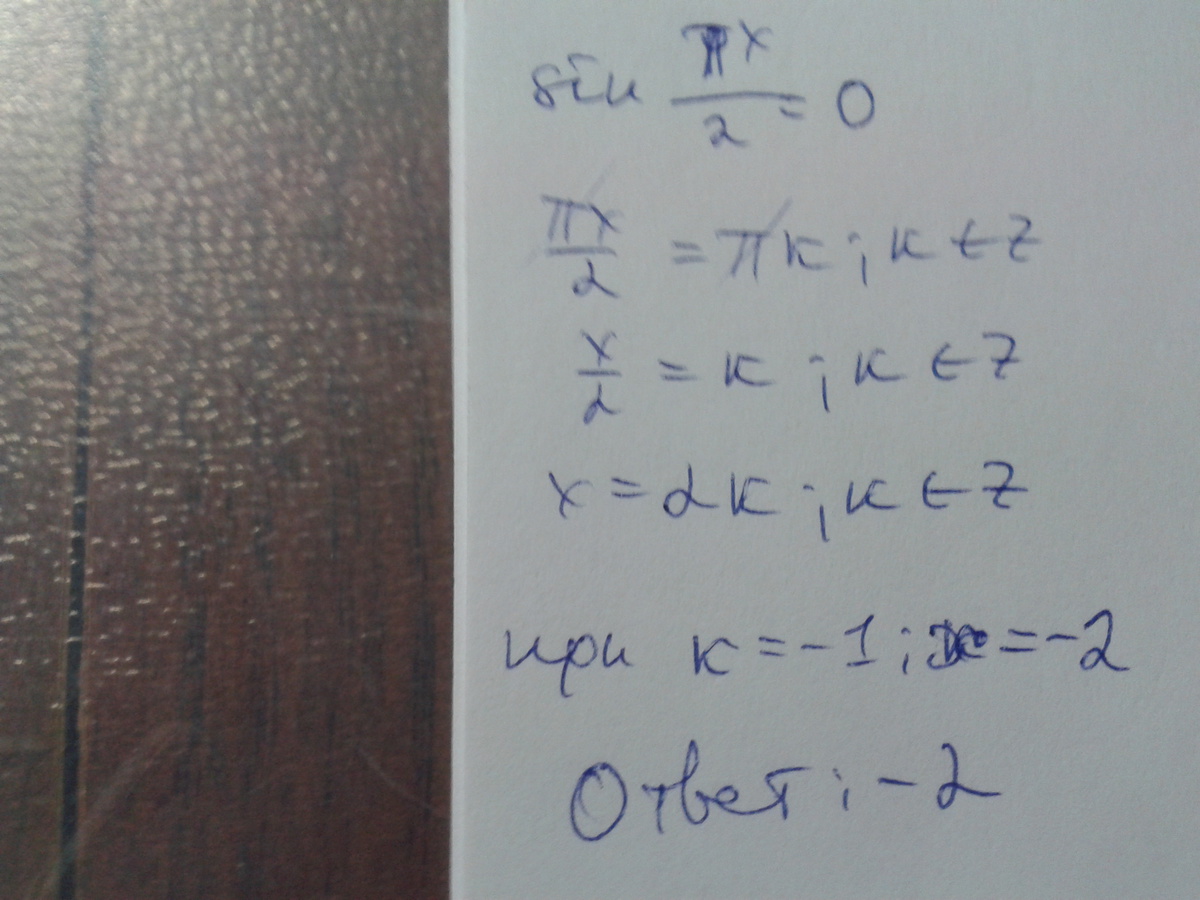 sin πx/2 = 0
πx/2 = πк ; к ∈ Z
x/2 = к ; к ∈ Z
x = 2к ; к ∈ Z
при к = -1 ; x = -2
Ответ: -2